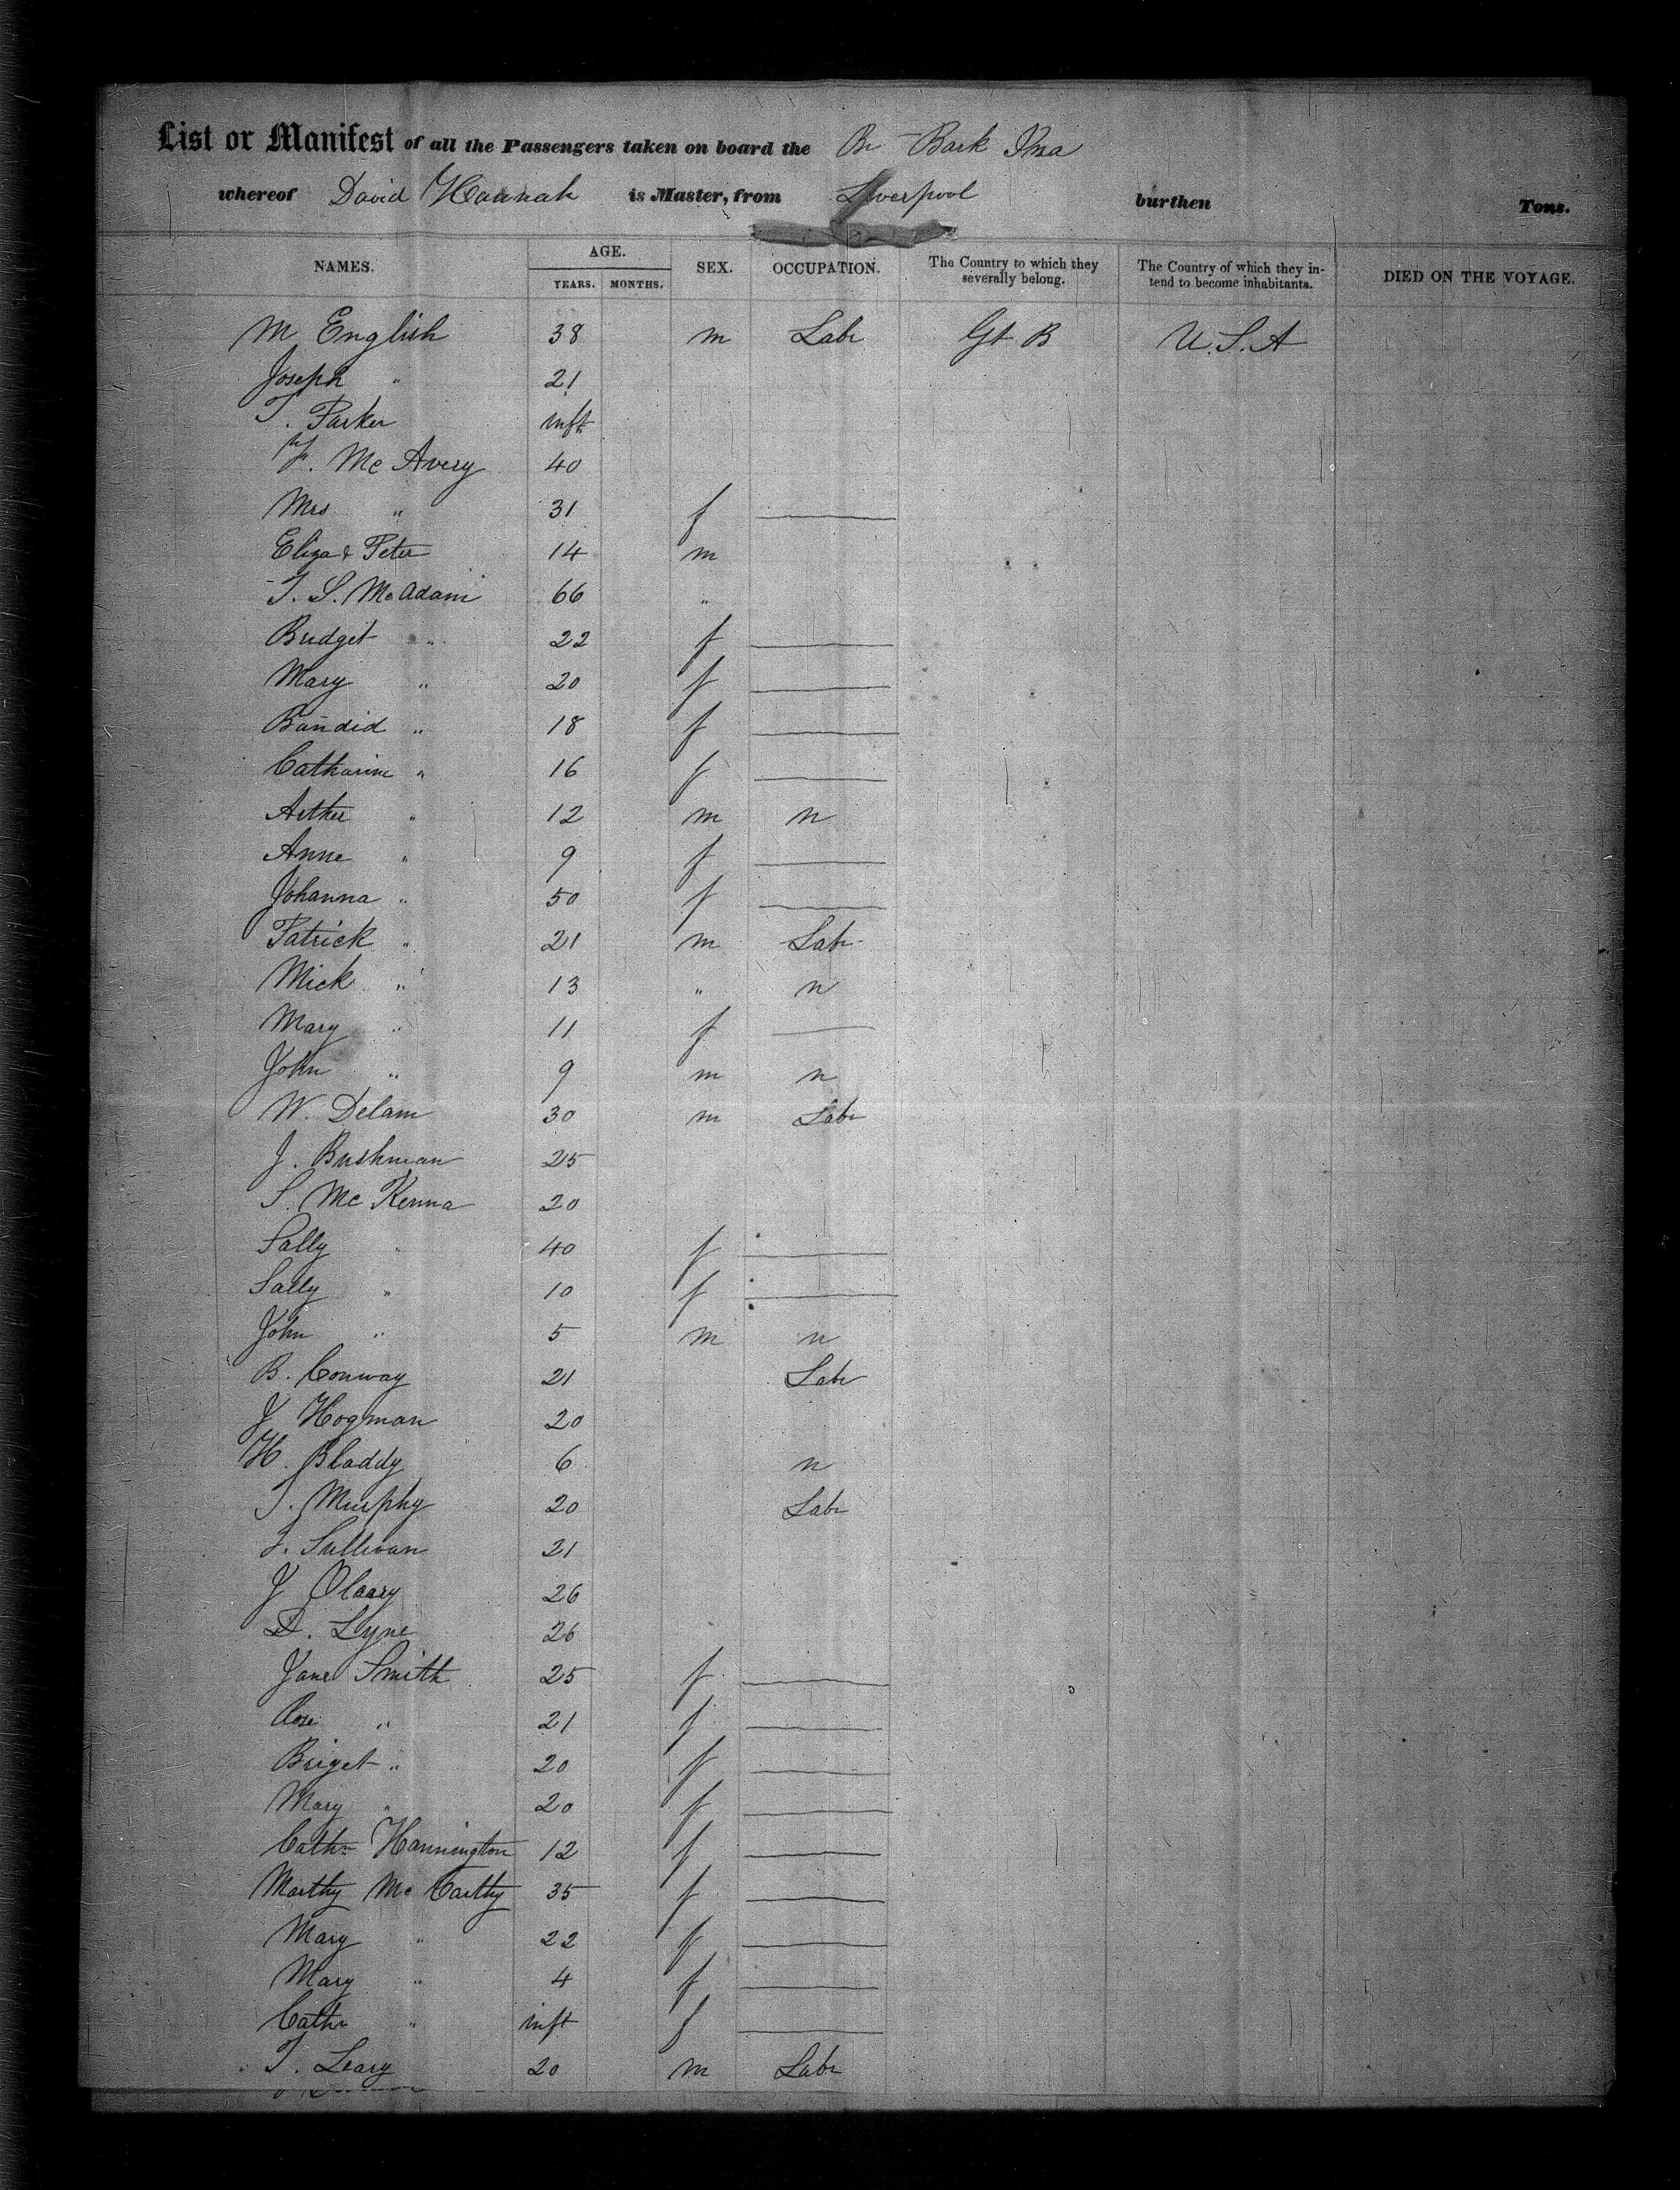 List or Manifest of all the Passengers taken on board the Br Bark Ina
whereof David Hannah is Master, from Liverpool burthen Tons.
NAMES. AGE. YEARS. MONTHS. SEX. OCCUPATION. The Country to which they severally belong. The Country of which they intend to become inhabitants. DIED ON THE VOYAGE.
M English 38 m Labr Gt B U.S.A
Joseph " 21
T. Parker inft
J. Mc Avery 40
Mrs " 31 f
Eliza & Peter 14 m
T. S. McAdam 66 "
Bridget " 22 f
Mary " 20 f
Bandid " 18 f
Catharine " 16 f
Arther " 12 m n
Anne " 9 f
Johanna " 50 f
Patrick " 21 m Labr
Mick " 13 " n
Mary " 11 f
John " 9 m n
W. Delam 30 m Labr
J. Bushman 25
S. Mc Kenna 20
Sally " 40 f
Sally " 10 f
John " 5 m n
B. Conway 21 Labr
J Hogman 20
H. Bladdy 6 n
T. Murphy 20 Labr
J. Sullivan 21
J Oleary 26
D. Lyne 26
Jane Smith 25 f
Rose " 21 f
Briget " 20 f
Mary " 20 f
Cathn Hannington 12 f
Marthy Mc Carthy 35 f
Mary " 22 f
Mary " 4 f
Cathn " inft f
T. Leary 20 m Labr